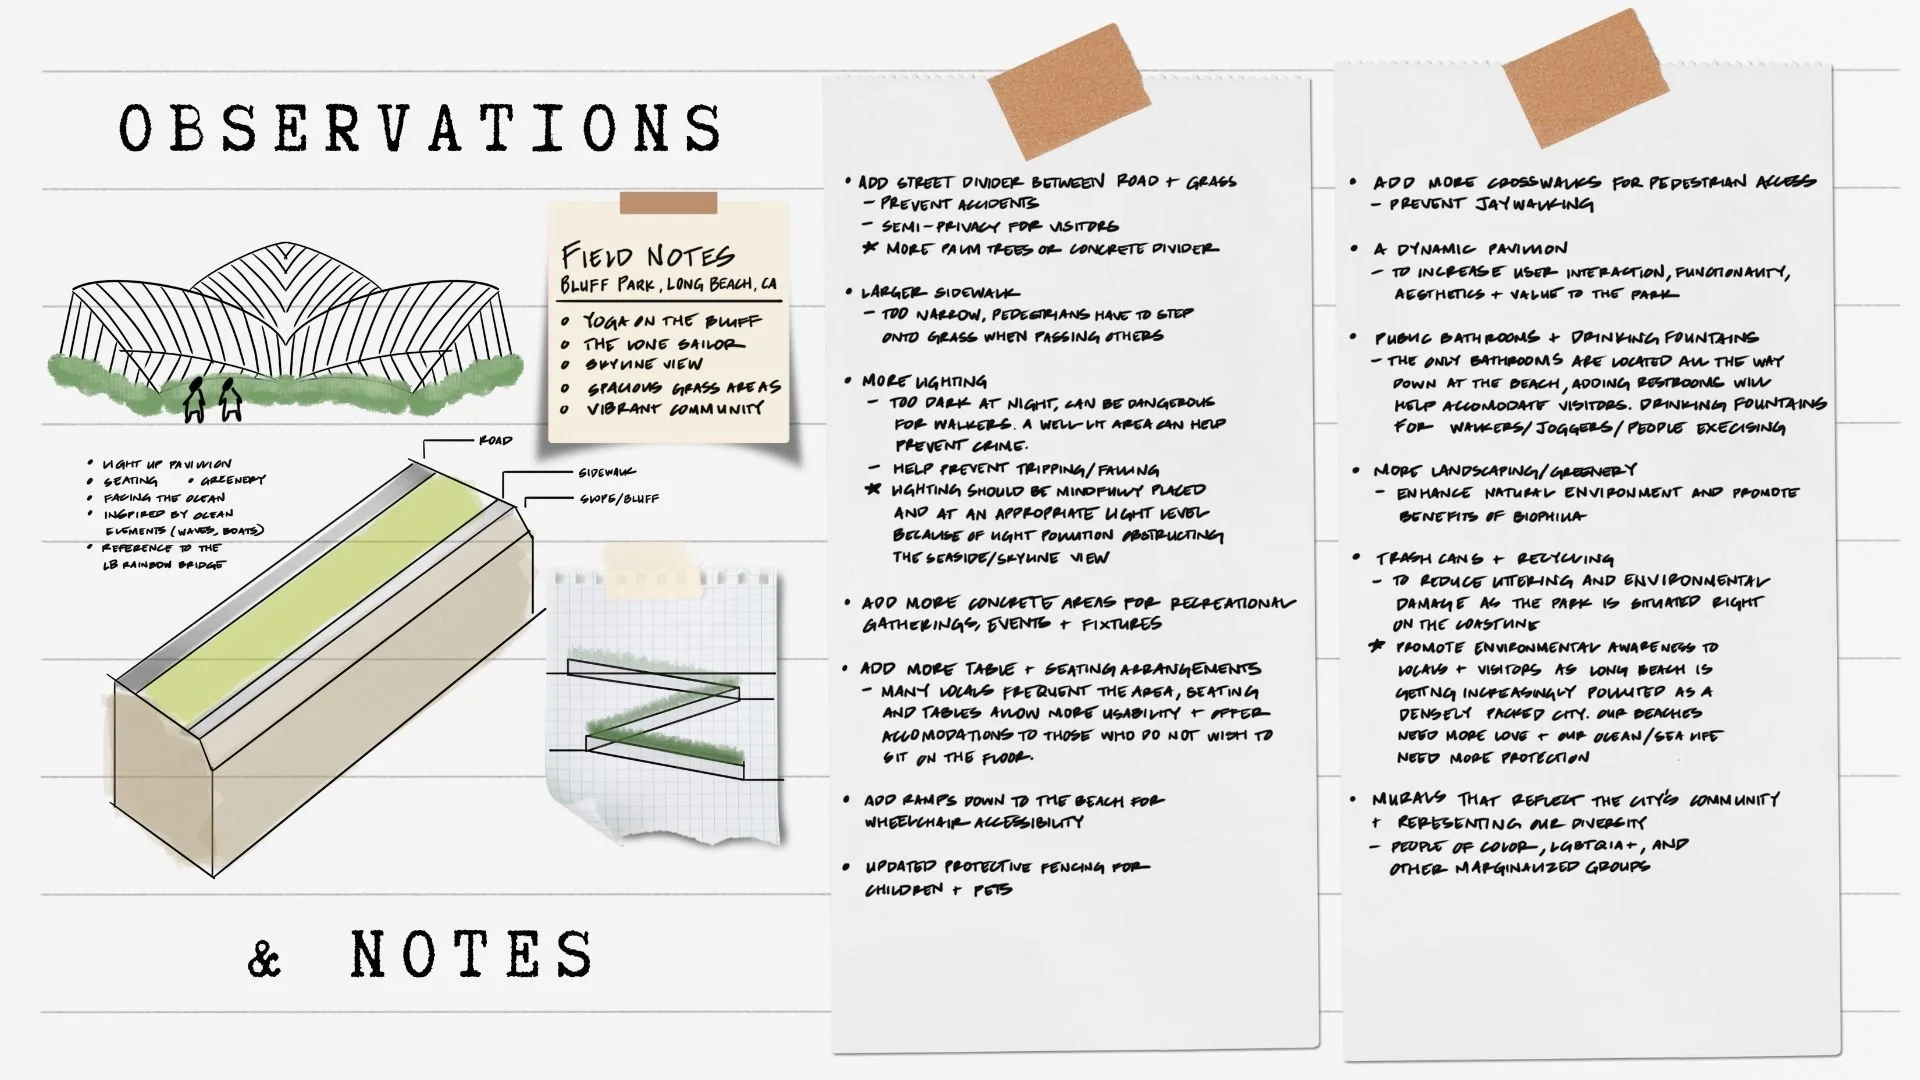 OBSERVATIONS
FIELD NOTES
BLUFF PARK, LONG BEACH, CA
• YOGA ON THE BLUFF
• THE LONE SAILOR
• SKYLINE VIEW
• SPACIOUS GRASS AREAS
• VIBRANT COMMUNITY
ROAD
SIDEWALK
SLOPE/BLUFF
• LIGHT UP PAVILLION
• SEATING • GREENERY
• FACING THE OCEAN
• INSPIRED BY OCEAN
ELEMENTS (WAVES, BOATS)
• REFERENCE TO THE
LB RAINBOW BRIDGE
& NOTES
• ADD STREET DIVIDER BETWEEN ROAD + GRASS
– PREVENT ACCIDENTS
– SEMI-PRIVACY FOR VISITORS
★ MORE PALM TREES OR CONCRETE DIVIDER
• LARGER SIDEWALK
– TOO NARROW, PEDESTRIANS HAVE TO STEP
ONTO GRASS WHEN PASSING OTHERS
• MORE LIGHTING
– TOO DARK AT NIGHT, CAN BE DANGEROUS
FOR WALKERS. A WELL LIT AREA CAN HELP
PREVENT CRIME.
– HELP PREVENT TRIPPING/FALLING
★ LIGHTING SHOULD BE MINDFULLY PLACED
AND AT AN APPROPRIATE LIGHT LEVEL
BECAUSE OF LIGHT POLLUTION OBSTRUCTING
THE SEASIDE/SKYLINE VIEW
• ADD MORE CONCRETE AREAS FOR RECREATIONAL
GATHERINGS, EVENTS + FIXTURES
• ADD MORE TABLE + SEATING ARRANGEMENTS
– MANY LOCALS FREQUENT THE AREA, SEATING
AND TABLES ALLOW MORE USABILITY + OFFER
ACCOMODATIONS TO THOSE WHO DO NOT WISH TO
SIT ON THE FLOOR.
• ADD RAMPS DOWN TO THE BEACH FOR
WHEELCHAIR ACCESSIBILITY
• UPDATED PROTECTIVE FENCING FOR
CHILDREN + PETS
• ADD MORE CROSSWALKS FOR PEDESTRIAN ACCESS
– PREVENT JAYWALKING
• A DYNAMIC PAVILLION
– TO INCREASE USER INTERACTION, FUNCTIONALITY,
AESTHETICS + VALUE TO THE PARK
• PUBLIC BATHROOMS + DRINKING FOUNTAINS
– THE ONLY BATHROOMS ARE LOCATED ALL THE WAY
DOWN AT THE BEACH, ADDING RESTROOMS WILL
HELP ACCOMODATE VISITORS. DRINKING FOUNTAINS
FOR WALKERS/JOGGERS/PEOPLE EXECISING
• MORE LANDSCAPING/GREENERY
– ENHANCE NATURAL ENVIRONMENT AND PROMOTE
BENEFITS OF BIOPHILIA
• TRASH CANS + RECYCLING
– TO REDUCE LITTERING AND ENVIRONMENTAL
DAMAGE AS THE PARK IS SITUATED RIGHT
ON THE COASTLINE
★ PROMOTE ENVIRONMENTAL AWARENESS TO
LOCALS + VISITORS AS LONG BEACH IS
GETTING INCREASINGLY POLLUTED AS A
DENSELY PACKED CITY. OUR BEACHES
NEED MORE LOVE + OUR OCEAN/SEA LIFE
NEED MORE PROTECTION
• MURALS THAT REFLECT THE CITY'S COMMUNITY
+ REPRESENTING OUR DIVERSITY
– PEOPLE OF COLOR, LGBTQIA+, AND
OTHER MARGINALIZED GROUPS